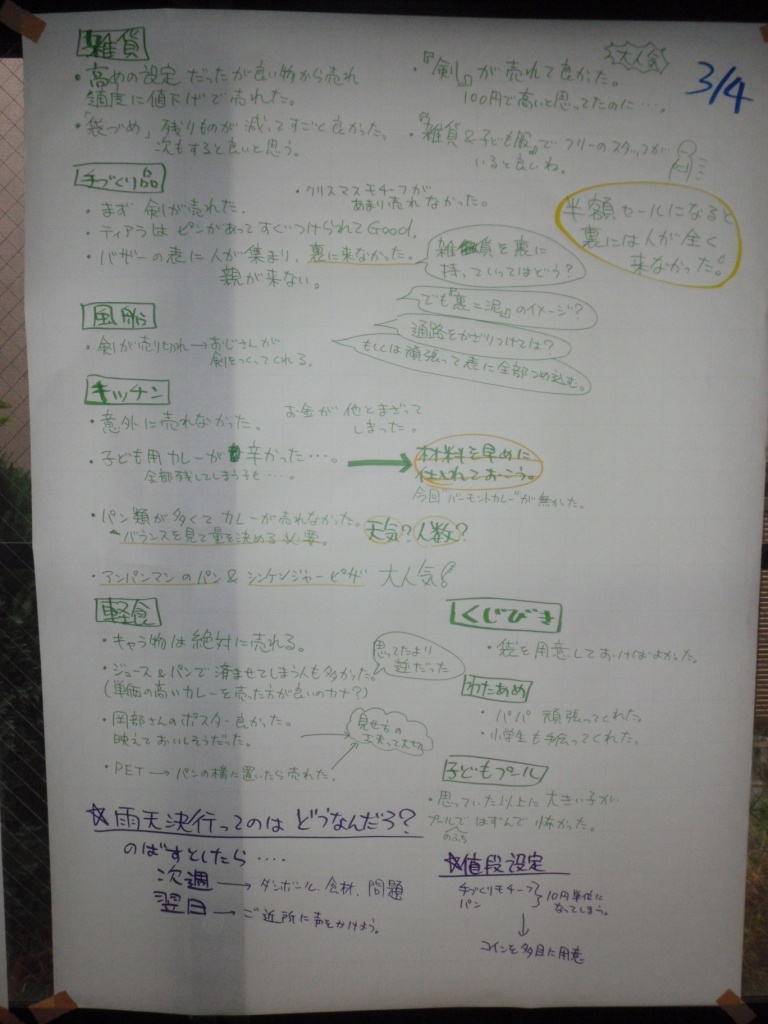 3/4
雑貨
・高めの設定だったが良い物から売れ
適度に値下げで売れた。
・「袋づめ」残りものが減ってすごと良かった。
次もすると良いと思う。
大人気
・『剣』が売れて良かった。
100円で高いと思ってたのに…。
・『雑貨&子ども服』でフリーのスタッフが
いると良いね。
手づくり品
・まず剣が売れた。
・ティアラはピンがあってすぐつけられてGood.
・バザーの表に人が集まり、裏に来なかった。
親が来ない。
・クリスマスモチーフが
あまり売れなかった。
半額セールになると
裏には人が全く
来なかった。
雑貨を裏に
持っていってはどう?
でも『裏=泥』のイメージ?
通路をかざりつけては?
もしくは頑張って表に全部つめ込む。
風船
・剣が売り切れ→おじさんが
剣をつくってくれる。
キッチン
・意外に売れなかった。
お金が他とまざって
しまった。
・子ども用カレーが辛かった…。
全部残してしまう子も…。
材料を早めに
仕入れておこう。
今回"バーモントカレー"が無かった。
・パン類が多くてカレーが売れなかった。
バランスを見て量を決める必要。
天気?人数?
・アンパンマンのパン&シンケンジャーピザ 大人気!
軽食
・キャラ物は絶対に売れる。
・ジュース&パンで済ませてしまう人も多かった。
(単価の高いカレーを売った方が良いのカナ?)
思ってたより
逆だった
・岡部さんのポスター良かった。
映えておいしそうだった。
・PET→パンの横に置いたら売れた。
見せ方の
工夫って大切
くじびき
・袋を用意しておけばよかった。
わたあめ
・パパ頑張ってくれた。
・小学生も手伝ってくれた。
子どもプール
・思っていた以上に大きい子が
プールではずんで怖かった。
のふち
☆雨天決行ってのはどうなんだろ?
のばすとしたら‥‥
次週→ダンボール、食材、問題
翌日→ご近所に声をかけよう。
☆値段設定
手づくりモチーフ
パン
10円単位に
なってしまう。
コインを多目に用意